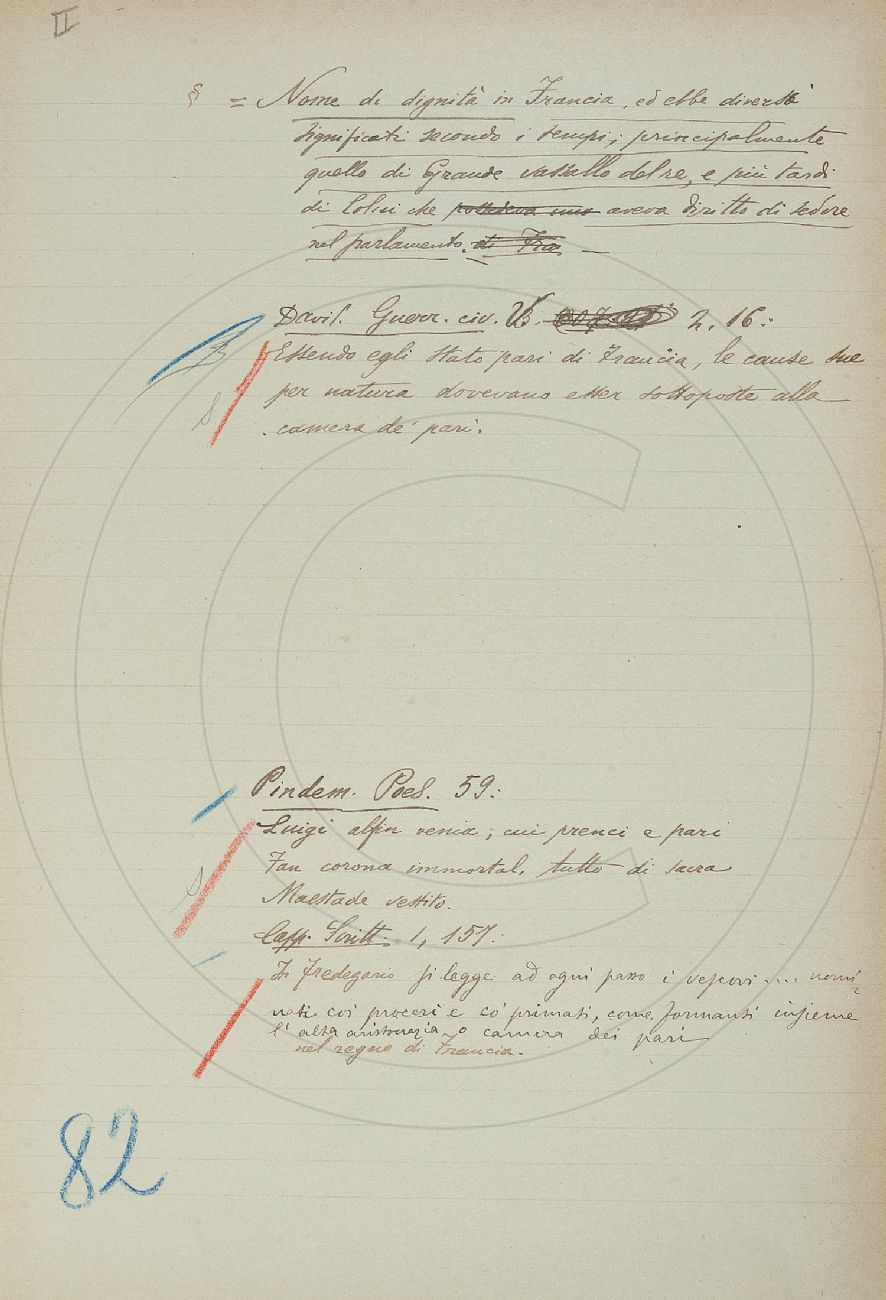 II
§ = Nome di dignità in Francia, ed ebbe diversi
significati secondo i tempi; principalmente
quello di Grande vassallo del re, e più tardi
di Colui che possedeva uno aveva diritto di sedere
nel parlamento. di Fra
Davil. Guerr. civ. 2, 16:
Essendo egli stato pari di Francia, le cause sue
per natura dovevano esser sottoposte alla
camera de' pari.
Pindem. Poes. 59:
Luigi alfin venia, cui prenci e pari
Fan corona immortal, tutto di sacra
Maestade vestito.
Capp. Scritt. 1, 157:
In Fredegario si legge ad ogni passo i vescovi .... nomi-
nati coi proceri e co' primati, come formanti insieme
l'alta aristocrazia o camera dei pari
nel regno di Francia.
82